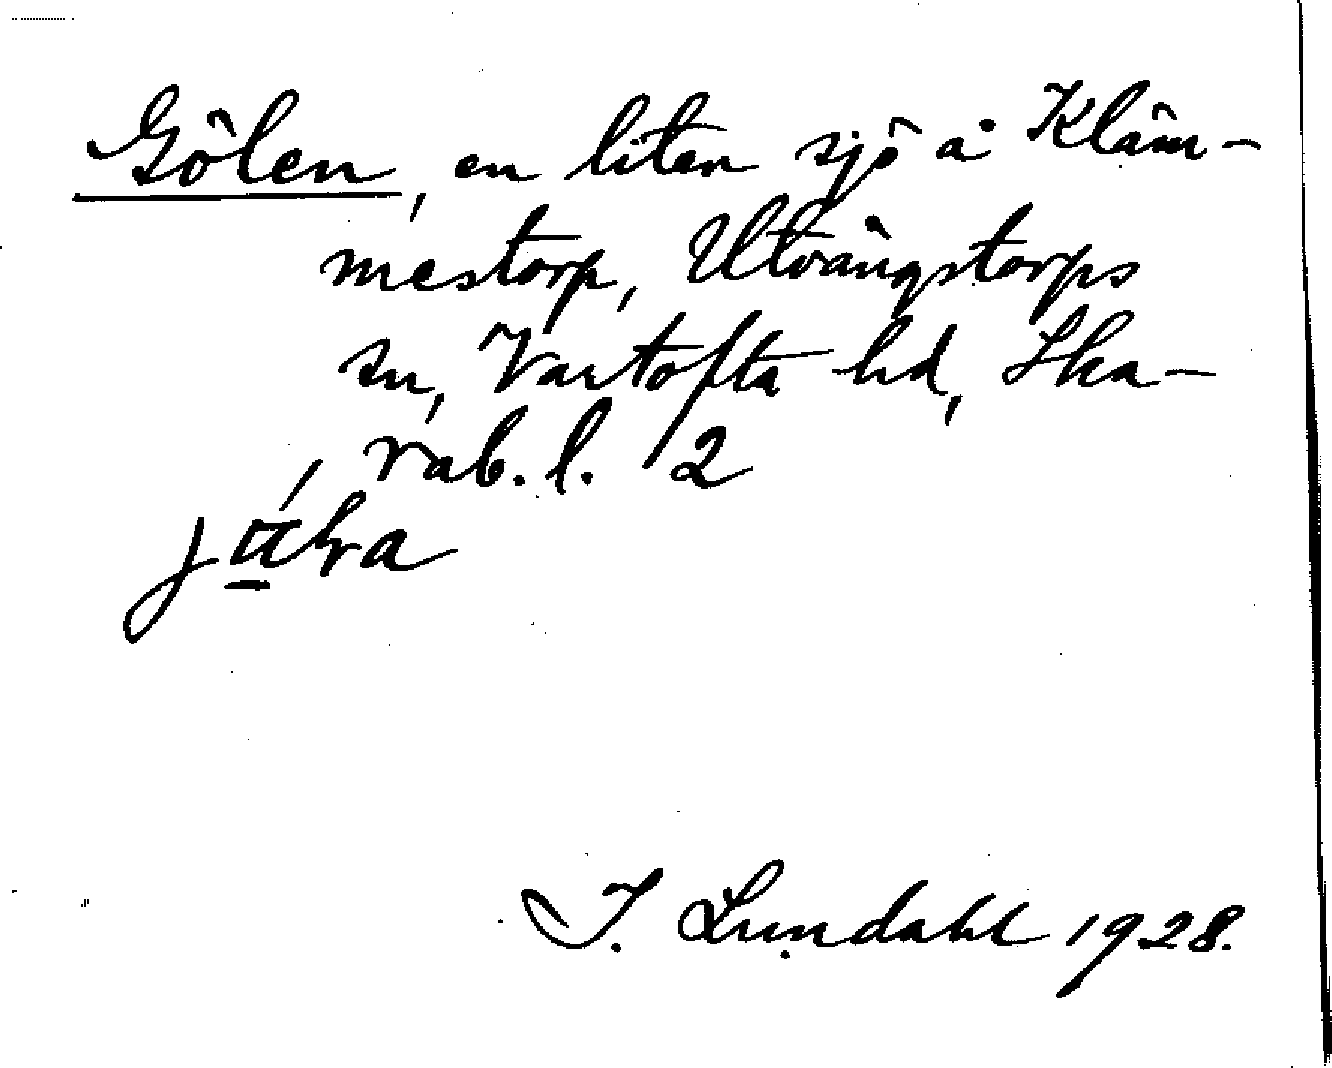 Gölen, en liten sjö å Kläm-
mestorp, Utvängstorps
sn, Vartofta hd, Ska-
rab. l. 2
I. Lundahl 1928.